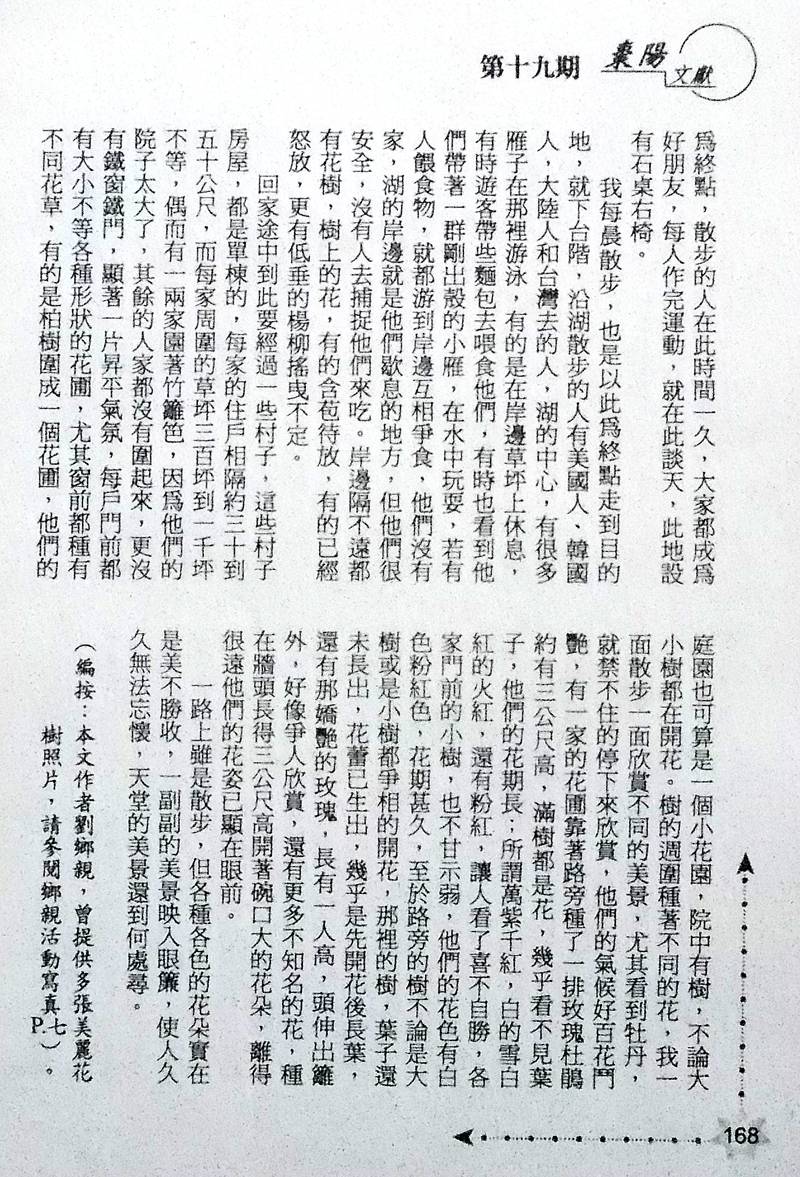 棗陽
文獻
第十九期
為終點，散步的人在此時間一久，大家都成為
好朋友，每人作完運動，就在此談天，此地設
有石桌石椅。
我每晨散步，也是以此為終點走到目的
地，就下台階，沿湖散步的人有美國人、韓國
人，大陸人和台灣去的人，湖的中心，有很多
雁子在那裡游泳，有的是在岸邊草坪上休息，
有時遊客帶些麵包去喂食他們，有時也看到他
們帶著一群剛出殼的小雁，在水中玩耍，若有
人餵食物，就都游到岸邊互相爭食，他們沒有
家，湖的岸邊就是他們歇息的地方，但他們很
安全，沒有人去捕捉他們來吃。岸邊隔不遠都
有花樹，樹上的花，有的含苞待放，有的已經
怒放，更有低垂的楊柳搖曳不定。
回家途中到此要經過一些村子，這些村子
房屋，都是單棟的，每家的住戶相隔約三十到
五十公尺，而每家周圍的草坪三百坪到一千坪
不等，偶而有一兩家園著竹籬笆，因為他們的
院子太大了，其餘的人家都沒有圍起來，更沒
有鐵窗鐵門，顯著一片昇平氣氛，每戶門前都
有大小不等各種形狀的花圃，尤其窗前都種有
不同花草，有的是柏樹圍成一個花圃，他們的
庭園也可算是一個小花園，院中有樹，不論大
小樹都在開花。樹的週圍種著不同的花，我一
面散步一面欣賞不同的美景，尤其看到牡丹，
就禁不住的停下來欣賞，他們的氣候好百花鬥
艷，有一家的花圃靠著路旁種了一排玫瑰杜鵑
約有三公尺高，滿樹都是花，幾乎看不見葉
子，他們的花期長；所謂萬紫千紅，白的雪白
紅的火紅，還有粉紅，讓人看了喜不自勝，各
家門前的小樹，也不甘示弱，他們的花色有白
色粉紅色，花期甚久，至於路旁的樹不論是大
樹或是小樹都爭相的開花，那裡的樹，葉子還
未長出，花蕾已生出，幾乎是先開花後長葉，
還有那嬌艷的玫瑰，長有一人高，頭伸出籬
外，好像爭人欣賞，還有更多不知名的花，種
在牆頭長得三公尺高開著碗口大的花朵，離得
很遠他們的花姿已顯在眼前。
一路上雖是散步，但各種各色的花朵實在
是美不勝收，一副副的美景映入眼簾，使人久
久無法忘懷，天堂的美景還到何處尋。
（編按：本文作者劉鄉親，曾提供多張美麗花
樹照片，請參閱鄉親活動寫真P.七）。
168